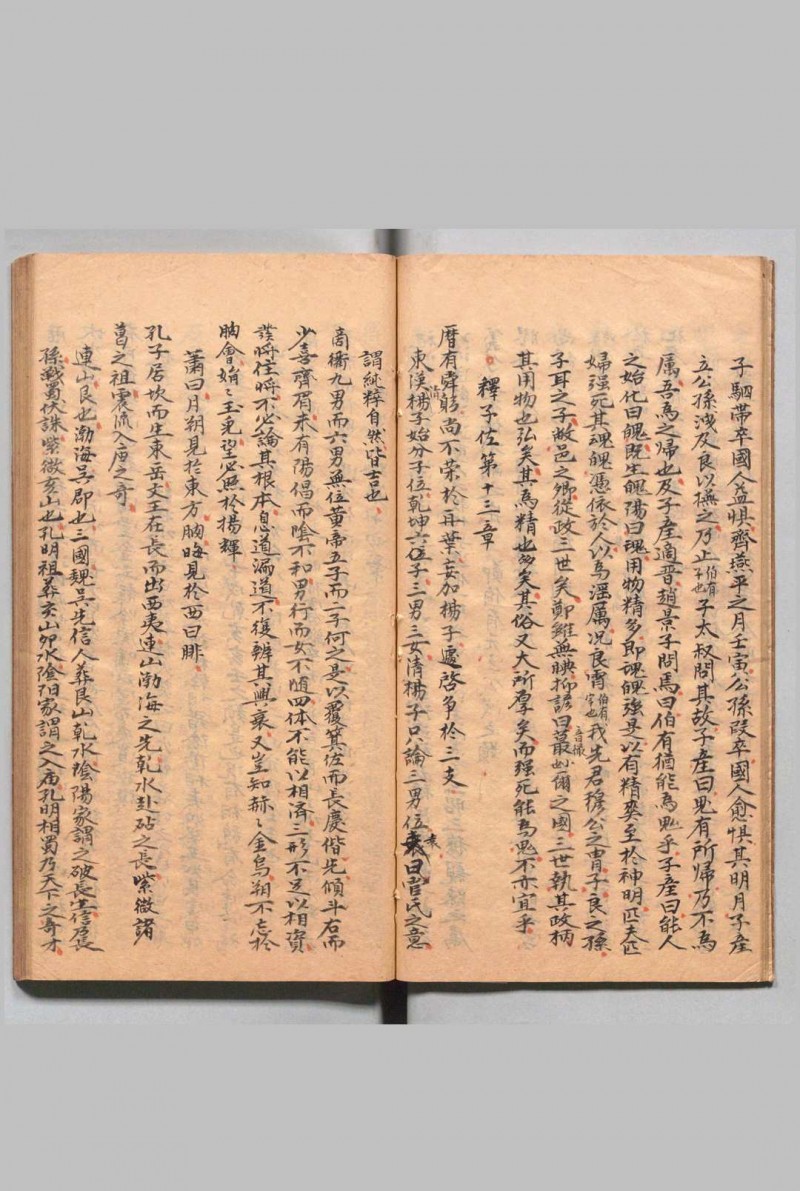 子駟帶卒國人益惧齊燕平之月壬寅公孫段卒國人愈惧其明月子産
立公孫洩及良以撫之乃止伯有子也子太叔問其故子產曰鬼有所帰乃不為
厲吾為之帰也及子産適晋趙景子問焉曰伯有猶能為鬼乎子產曰能人
之始化曰魄既生魄陽曰魂用物精多即魂魄強是以有精爽至於神明匹夫匹
婦强死其魂魄憑依於人以為淫厲况良霄伯有字也我先君穆公之胄子良之孫
子耳之子敝邑之卿從政三世矣鄭雖無腆抑諺曰蕞音撮尔之國三世執其政柄
其用物也弘矣其為精也多矣其俗又大所厚矣而强死能為鬼不亦宜乎
釋子位第十三章
曆有舜躬尚不榮於再葉妄加楊子邊啓争於三支
東漢楊子始分子位乾坤六位子三男三女清楊子只論三男位袁曰管氏之意
謂純粹自然皆吉也
商衛九男而六男無位黄帝五子而二子何之是以覆箕佐而長慶偕先傾斗右而
少喜齊眉未有陽倡而陰不和男行而女不随四体不能以相済二形不足以相資
將住將不必論其根本息道漏道不復辨其興衰又豈知赫〻金烏朔不忘於
朒會娟〻玉兎望必照於揚輝
蕭曰月朔見於東方朒晦見於西曰朏
孔子居坎而生東岳文王在長而出西夷連山渤海之先乾水赴砧之長紫微諸
葛之祖震流入庙之奇
連山艮也渤海呉郡也三國魏呉先信人葬艮山乾水陰陽家謂之破長生信乃長
孫滅蜀伏誅紫微亥山也孔明祖葬亥山夘水陰陽家謂之入庙孔明相蜀乃天下之奇才